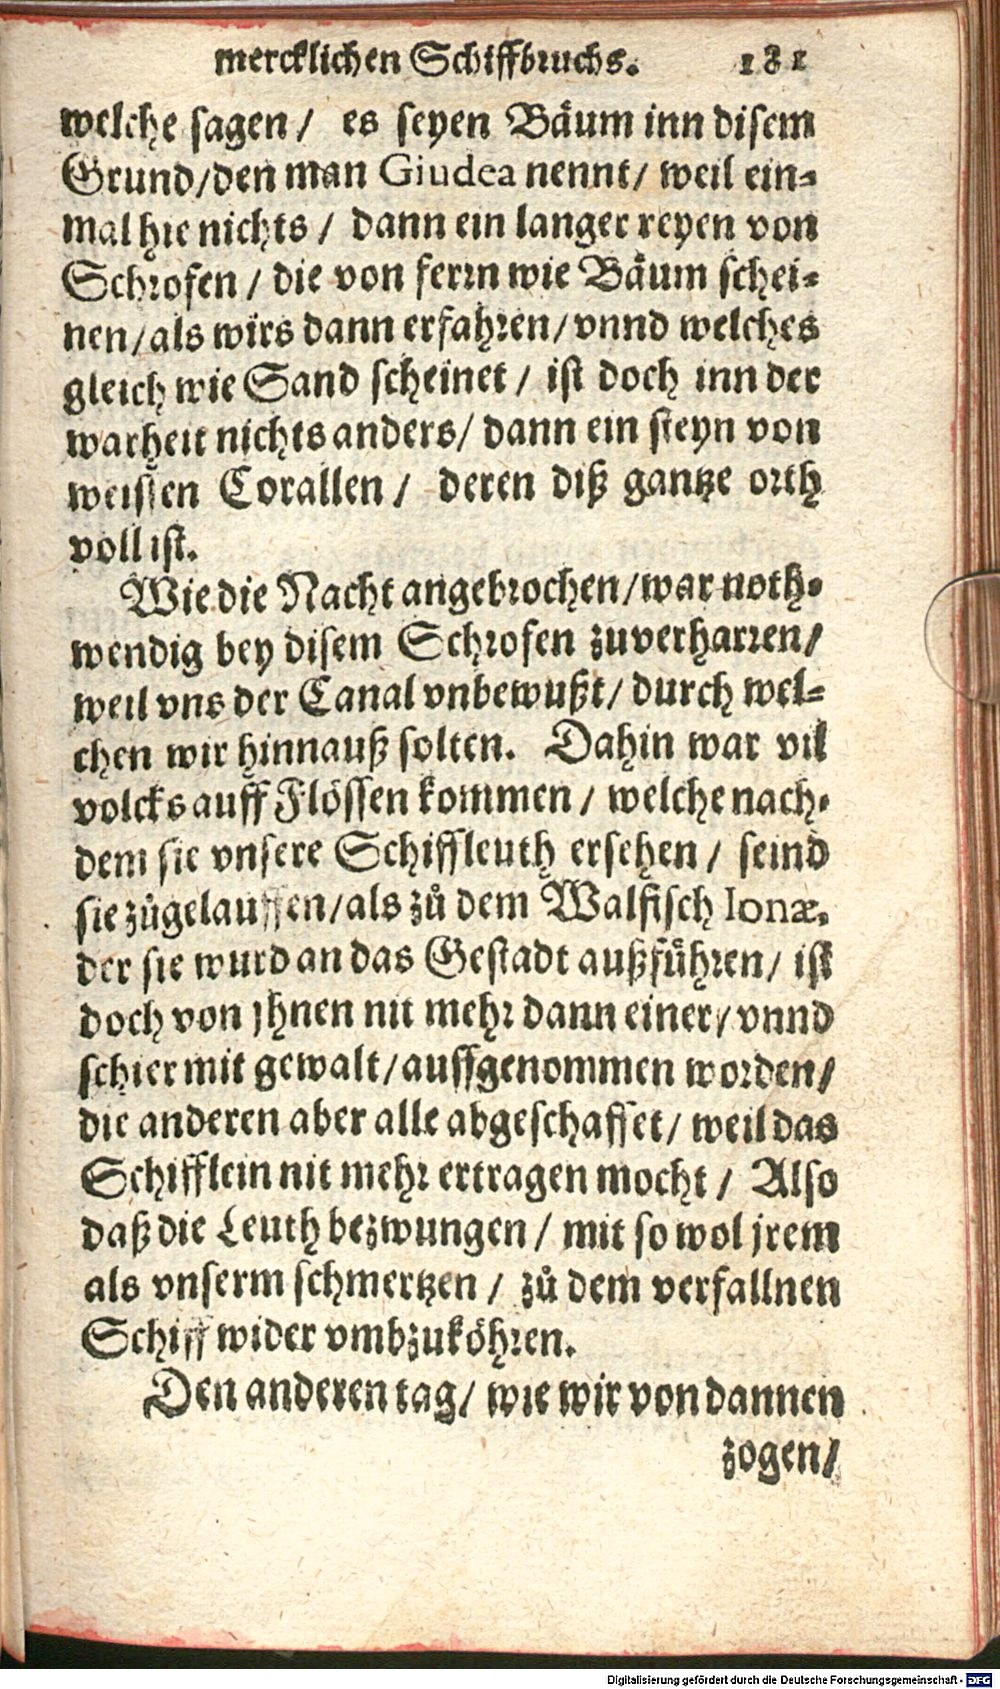 mercklichen Schiffbruchs. 181
welche sagen / es seyen Bäum inn disem
Grund/den man Giudea nennt/ weil ein-
mal hie nichts / dann ein langer reyen von
Schrofen / die von ferrn wie Bäum schei-
nen/als wirs dann erfahren/vnnd welches
gleich wie Sand scheinet / ist doch inn der
warheit nichts anders/ dann ein steyn von
weissen Corallen / deren diß gantze orth
voll ist.
Wie die Nacht angebrochen/war noth-
wendig bey disem Schrofen zuverharren/
weil vns der Canal vnbewußt/ durch wel-
chen wir hinnauß solten. Dahin war vil
volcks auff Flössen kommen / welche nach-
dem sie vnsere Schiffleuth ersehen / seind
sie zůgelauffen/als zů dem Walfisch Ionæ.
der sie wurd an das Gestadt außführen/ ist
doch von jhnen nit mehr dann einer/vnnd
schier mit gewalt/auffgenommen worden/
die anderen aber alle abgeschaffet/ weil das
Schifflein nit mehr ertragen mocht / Also
daß die Leuth bezwungen / mit so wol jrem
als vnserm schmertzen / zů dem verfallnen
Schiff wider vmbzuköhren.
Den anderen tag/ wie wir von dannen
zogen/
Digitalisierung gefördert durch die Deutsche Forschungsgemeinschaft - DFG